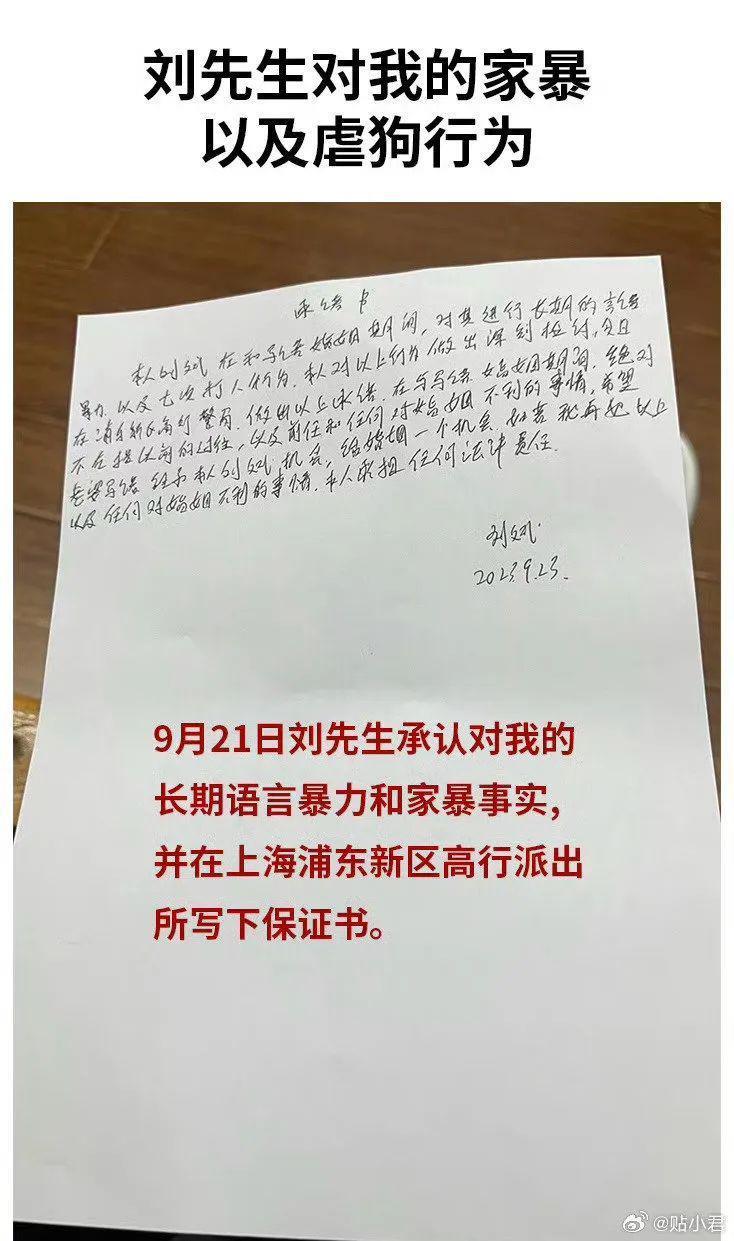 刘先生对我的家暴
以及虐狗行为
承诺书
本人刘 在和马 婚姻期间，对其进行长期的言语
暴力，以及七次打人行为，本人对以上行为做出深刻检讨，今日
在浦东新区高行警局，做出以上承诺，在与马 婚姻期间，绝对
不在提以前的过往，以及前任和任何对婚姻不利的事情，希望
老婆马 给予本人刘 机会，给婚姻一个机会，如若我再犯以上
以及任何对婚姻不利的事情，本人承担任何法律责任
刘
2023.9.23.
9月21日刘先生承认对我的
长期语言暴力和家暴事实，
并在上海浦东新区高行派出
所写下保证书。
@贴小君